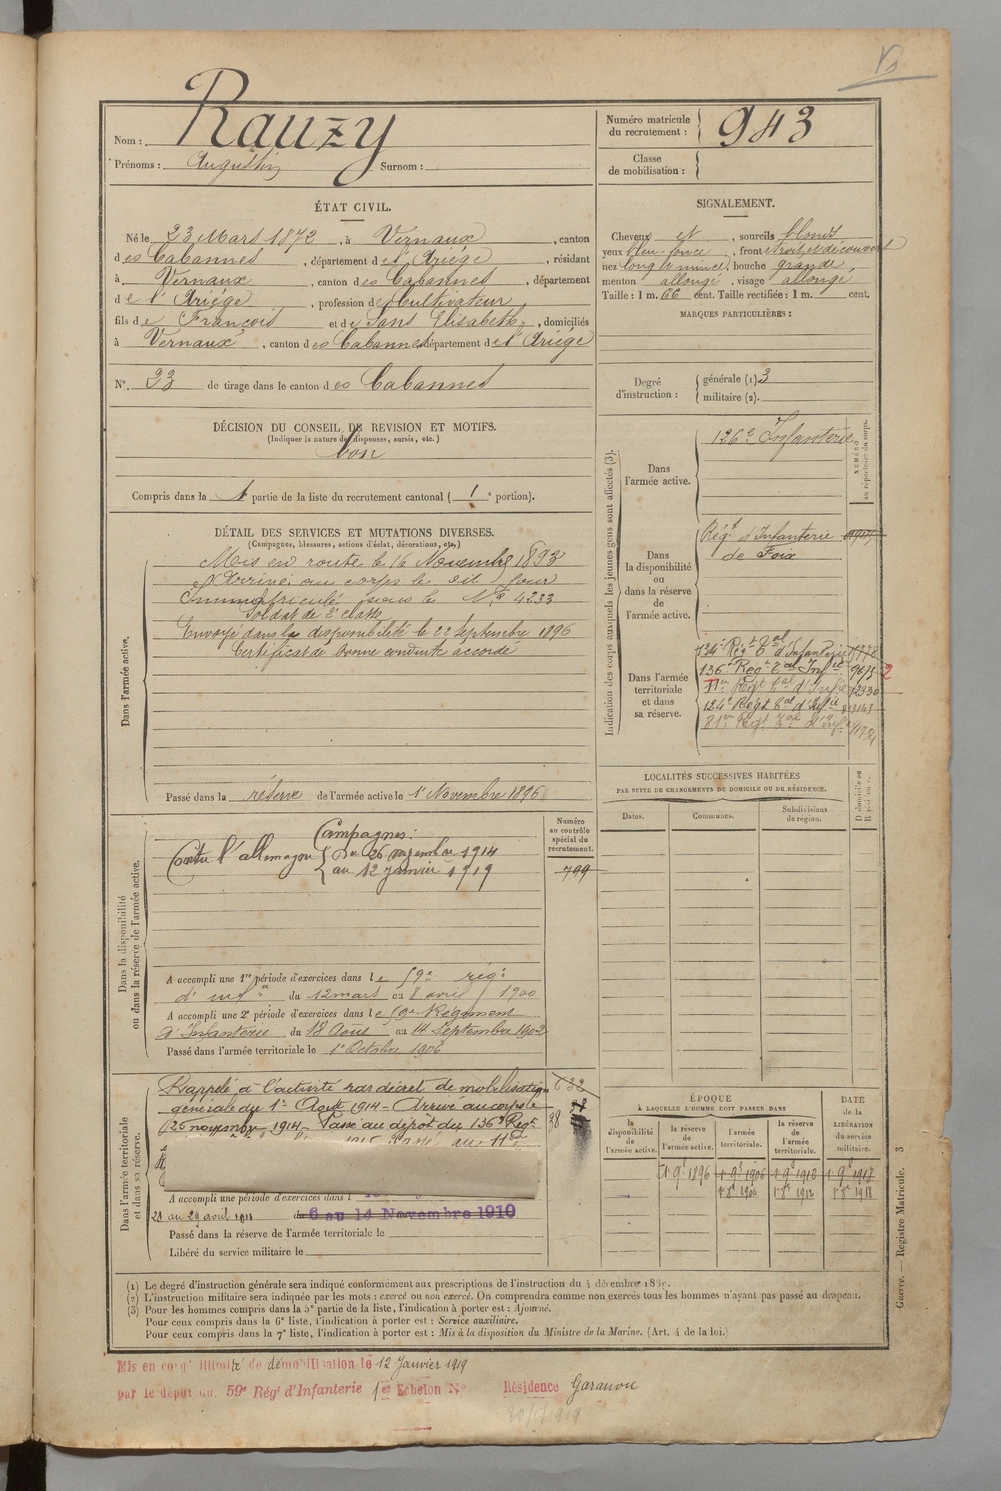 Vs
Nom : Rauzy
Prénoms : Augustin Surnom :
Numéro matricule du recrutement : 943
Classe de mobilisation :
ÉTAT CIVIL.
Né le 23 Mars 1872, à Vernaux, canton
des Cabannes, département de l'Ariège, résidant
à Vernaux, canton des Cabannes, département
de l'Ariège, profession de Cultivateur
fils de François et de Sans Elisabeth, domiciliés
à Vernaux, canton des Cabannes département de l'Ariège
N° 23 de tirage dans le canton des Cabannes
SIGNALEMENT.
Cheveux et, sourcils blonds
yeux bleu foncé, front étroit et découvert
nez long et mince, bouche grande,
menton allongé, visage allongé
Taille : 1 m. 66 cent. Taille rectifiée : 1 m. cent.
MARQUES PARTICULIÈRES :
Degré d'instruction : générale (1) 3
militaire (2).
DÉCISION DU CONSEIL DE REVISION ET MOTIFS.
(Indiquer la nature des dispenses, sursis, etc.)
bon
Compris dans la 1 partie de la liste du recrutement cantonal (1e portion).
DÉTAIL DES SERVICES ET MUTATIONS DIVERSES.
(Campagnes, blessures, actions d'éclat, décorations, etc.)
Dans l'armée active.
Mis en route le 16 Novembre 1893
Arrivé au corps le dit jour
Immatriculé sous le No 4233
Soldat de 2e classe
Envoyé dans la disponibilité le 22 Septembre 1896
Certificat de bonne conduite accordé
Passé dans la réserve de l'armée active le 1er Novembre 1896
Indication des corps auxquels les jeunes gens sont affectés (3).
NUMÉRO au répertoire du corps.
Dans l'armée active.
126e Infanterie
Dans la disponibilité ou dans la réserve de l'armée active.
Régt d'Infanterie
de Foix
Dans l'armée territoriale et dans sa réserve.
134e Régt Tal d'Infanterie
136e Régt Tal Infie 9675 2
Régt Tal d'Infie 12330
124e Régt Tal d'Infie 13143
Régt Tal d'Infie
LOCALITÉS SUCCESSIVES HABITÉES
PAR SUITE DE CHANGEMENTS DE DOMICILE OU DE RÉSIDENCE.
D domicile ou R résidence.
Dates. Communes. Subdivisions de région.
Dans la disponibilité ou dans la réserve de l'armée active.
Numéro au contrôle spécial du recrutement.
799
Campagnes :
Contre l'allemagne { Du 26 novembre 1914
au 12 janvier 1919
A accompli une 1re période d'exercices dans le 59e régt
d'infie du 12 mars au 8 avril 1900
A accompli une 2e période d'exercices dans le 59e Régiment
d'Infanterie du 18 Août au 14 Septembre 1902
Passé dans l'armée territoriale le 1er Octobre 1906
Dans l'armée territoriale et dans sa réserve.
Rappelé à l'activité par décret de mobilisation
générale du 1er Août 1914 – Arrivé au corps le
26 novembre 1914 – Passé au dépôt du 136e Régt
1915 Passé au
632
38
A accompli une période d'exercices dans l
21 au 29 avril 1911 du 6 au 14 Novembre 1910
Passé dans la réserve de l'armée territoriale le
Libéré du service militaire le
ÉPOQUE
À LAQUELLE L'HOMME DOIT PASSER DANS
DATE de la LIBÉRATION du service militaire.
la disponibilité de l'armée active. la réserve de l'armée active. l'armée territoriale. la réserve de l'armée territoriale.
1er 9e 1896 1er 9e 1906 1er 9e 1912 1er 9e 1918
1er 8e 1906 1er 8e 1912 1er 8e 1918
(1) Le degré d'instruction générale sera indiqué conformément aux prescriptions de l'instruction du 4 décembre 1889.
(2) L'instruction militaire sera indiquée par les mots : exercé ou non exercé. On comprendra comme non exercés tous les hommes n'ayant pas passé au drapeau.
(3) Pour les hommes compris dans la 5e partie de la liste, l'indication à porter est : Ajourné.
Pour ceux compris dans la 6e liste, l'indication à porter est : Service auxiliaire.
Pour ceux compris dans la 7e liste, l'indication à porter est : Mis à la disposition du Ministre de la Marine. (Art. 4 de la loi.)
Guerre. — Registre Matricule. 3
Mis en congé illimité de démobilisation le 12 Janvier 1919
par le dépôt du 59e Régt d'Infanterie 1er Echelon N° Résidence Garanou